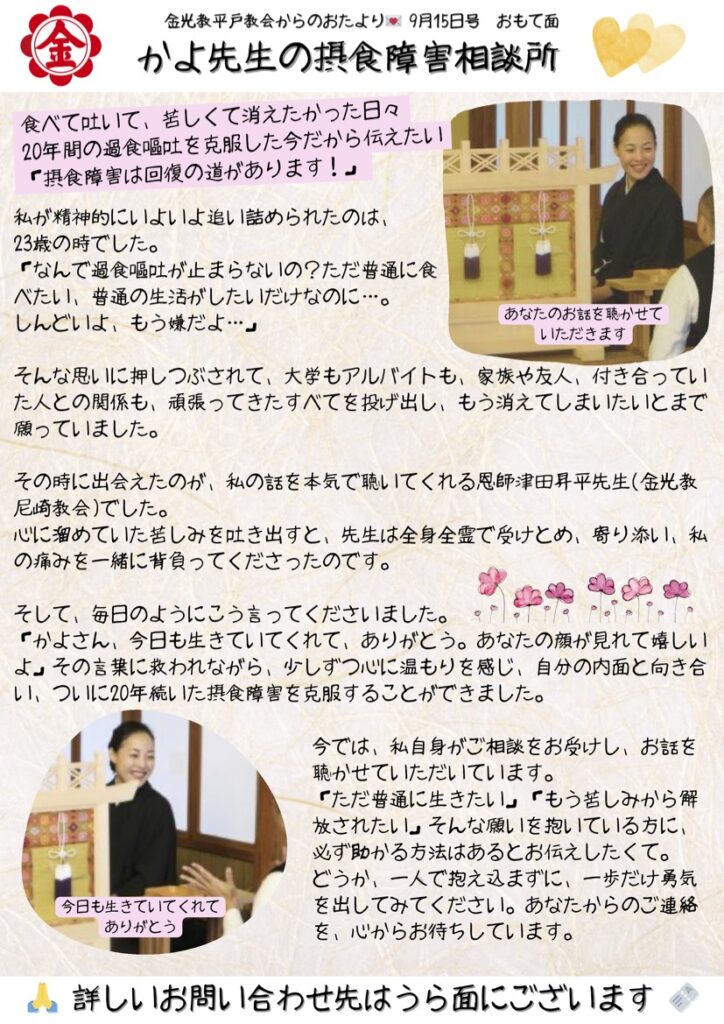 金光教平戸教会からのおたより💌 9月15日号 おもて面
金
かよ先生の摂食障害相談所
食べて吐いて、苦しくて消えたかった日々
20年間の過食嘔吐を克服した今だから伝えたい
「摂食障害は回復の道があります！」
私が精神的にいよいよ追い詰められたのは、
23歳の時でした。
「なんで過食嘔吐が止まらないの？ただ普通に食
べたい、普通の生活がしたいだけなのに…。
しんどいよ、もう嫌だよ…」
あなたのお話を聴かせて
いただきます
そんな思いに押しつぶされて、大学もアルバイトも、家族や友人、付き合ってい
た人との関係も、頑張ってきたすべてを投げ出し、もう消えてしまいたいとまで
願っていました。
その時に出会えたのが、私の話を本気で聴いてくれる恩師津田昇平先生(金光教
尼崎教会)でした。
心に溜めていた苦しみを吐き出すと、先生は全身全霊で受けとめ、寄り添い、私
の痛みを一緒に背負ってくださったのです。
そして、毎日のようにこう言ってくださいました。
「かよさん、今日も生きていてくれて、ありがとう。あなたの顔が見れて嬉しい
よ」その言葉に救われながら、少しずつ心に温もりを感じ、自分の内面と向き合
い、ついに20年続いた摂食障害を克服することができました。
今では、私自身がご相談をお受けし、お話を
聴かせていただいています。
「ただ普通に生きたい」「もう苦しみから解
放されたい」そんな願いを抱いている方に、
必ず助かる方法はあるとお伝えしたくて。
どうか、一人で抱え込まずに、一歩だけ勇気
を出してみてください。あなたからのご連絡
を、心からお待ちしています。
今日も生きていてくれて
ありがとう
🙏 詳しいお問い合わせ先はうら面にございます